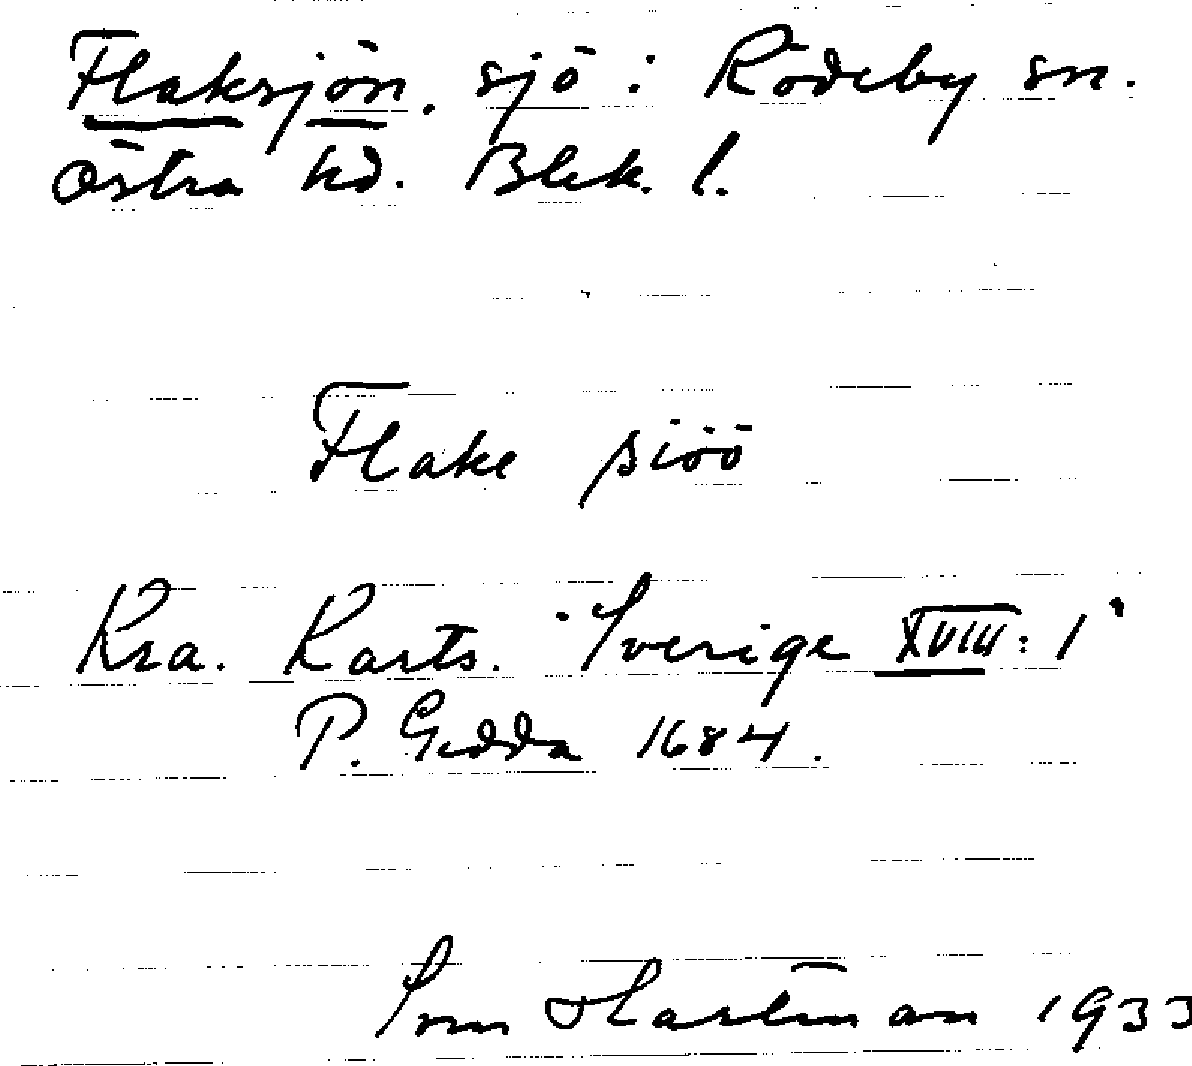 Flaksjön. sjö i Rödeby sn.
Östra hd. Blek. l.
Flake siöö
Kra. Karts. "Sverige XVIII: 1"
P. Gedda 1684.
Sven Hartman 1933